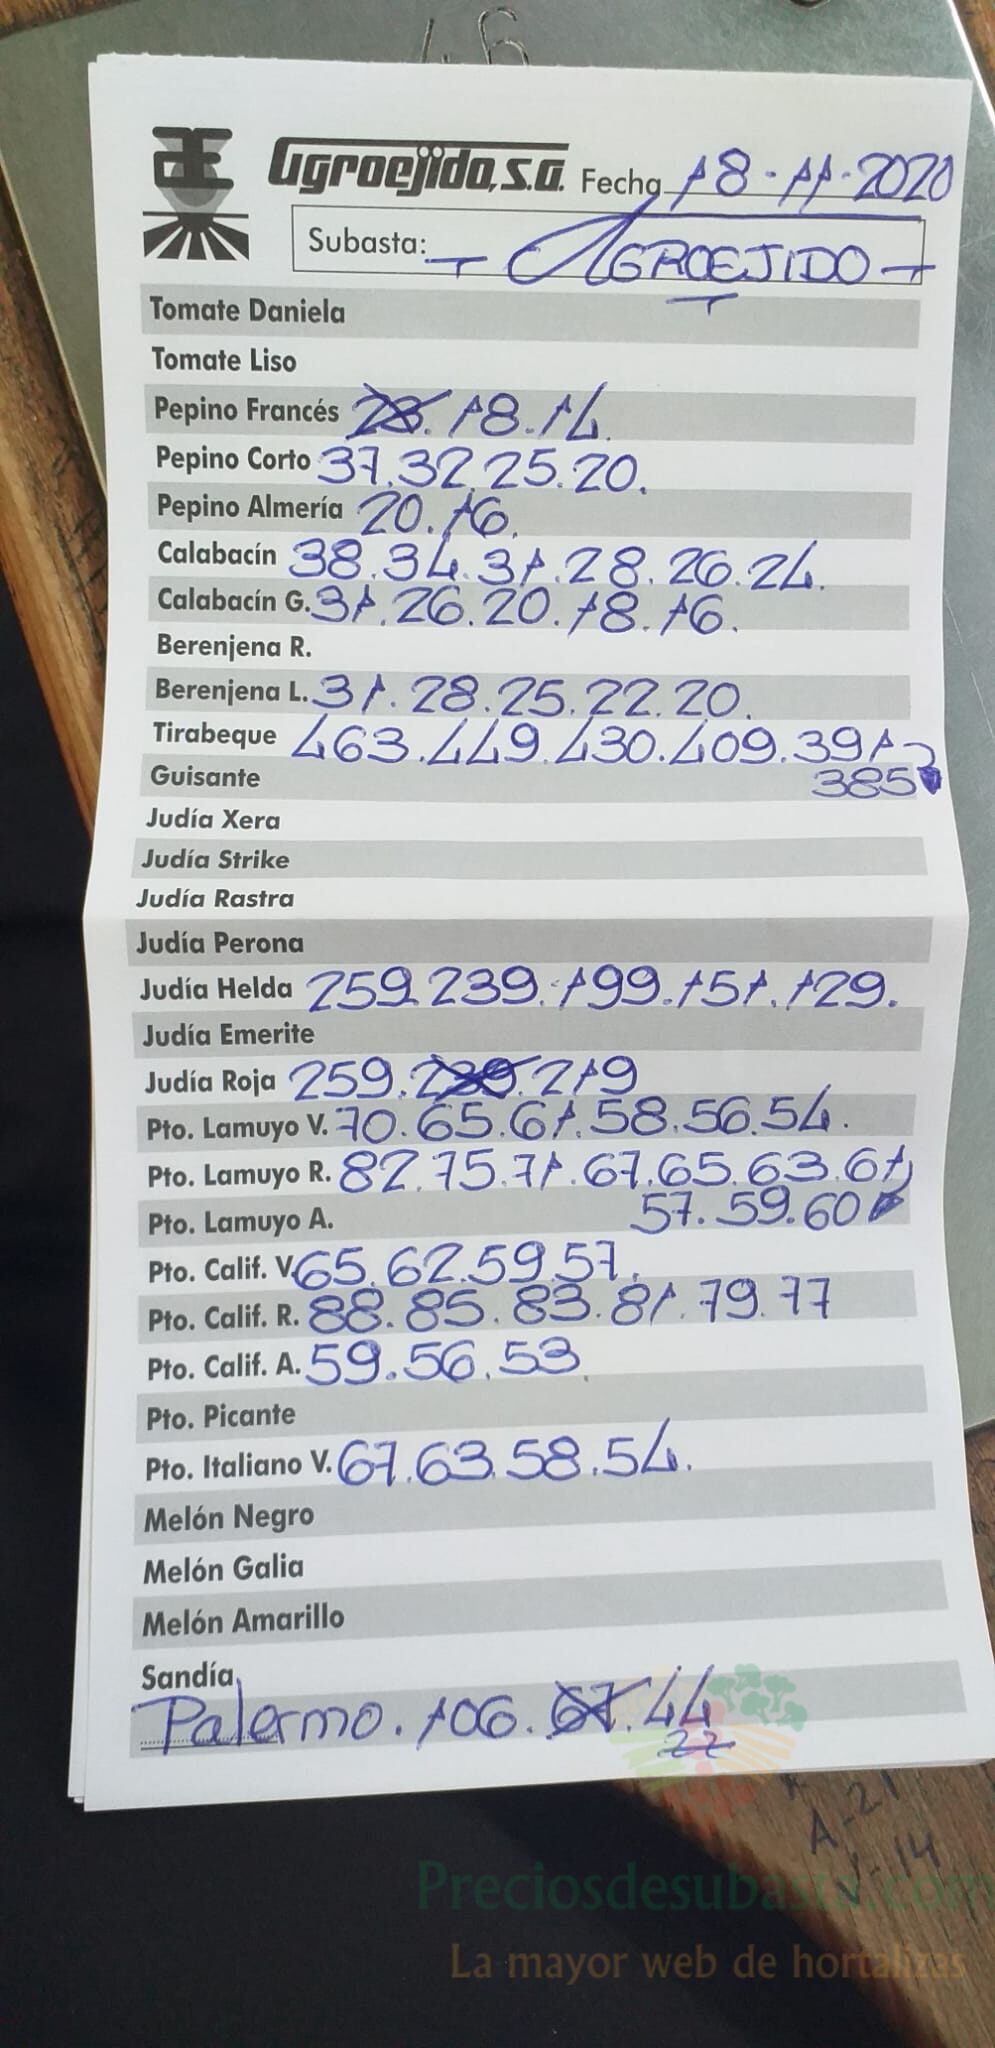 Agroejido, S.A. Fecha 18-11-2020
Subasta: - AGROEJIDO -
Tomate Daniela
Tomate Liso
Pepino Francés 28. 18. 14.
Pepino Corto 37. 32. 25. 20.
Pepino Almería 20. 16.
Calabacín 38. 34. 31. 28. 26. 24.
Calabacín G. 31. 26. 20. 18. 16.
Berenjena R.
Berenjena L. 31. 28. 25. 22. 20.
Tirabeque 463. 449. 430. 409. 391
Guisante 385
Judía Xera
Judía Strike
Judía Rastra
Judía Perona
Judía Helda 259. 239. 199. 151. 129.
Judía Emerite
Judía Roja 259. 239. 219
Pto. Lamuyo V. 70. 65. 61. 58. 56. 54.
Pto. Lamuyo R. 82. 75. 71. 67. 65. 63. 61
Pto. Lamuyo A. 57. 59. 60
Pto. Calif. V. 65. 62. 59. 57.
Pto. Calif. R. 88. 85. 83. 81. 79. 77
Pto. Calif. A. 59. 56. 53.
Pto. Picante
Pto. Italiano V. 67. 63. 58. 54.
Melón Negro
Melón Galia
Melón Amarillo
Sandía
Palermo. 106. 67. 44
22
A-21
V-14
Preciosdesubasta.com
La mayor web de hortalizas